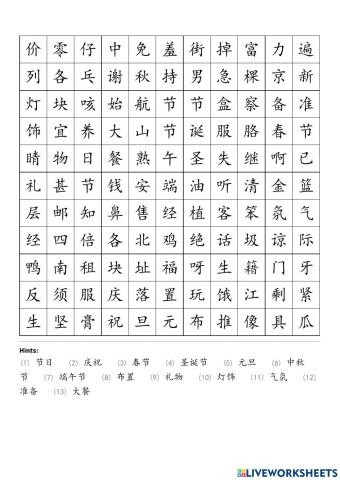 价 零 仔 中 免 羞 街 掉 富 力 遍
列 各 乓 谢 秋 持 男 急 棵 京 新
灯 块 咳 始 航 节 节 盒 察 备 准
饰 宜 养 大 山 节 诞 服 胳 春 节
晴 物 日 餐 熟 午 圣 失 继 啊 已
礼 甚 节 钱 安 端 油 听 清 金 篮
层 邮 知 鼻 售 经 植 客 笨 氛 气
经 四 倍 各 北 鸡 绝 话 圾 谅 际
鸭 南 租 块 址 福 呀 生 籍 门 牙
反 须 服 庆 落 置 玩 饿 江 剩 紧
生 坚 膏 祝 旦 元 布 推 像 具 瓜
Hints:
(1) 节日 (2) 庆祝 (3) 春节 (4) 圣诞节 (5) 元旦 (6) 中秋
节 (7) 端午节 (8) 布置 (9) 礼物 (10) 灯饰 (11) 气氛 (12)
准备 (13) 大餐
LIVEWORKSHEETS